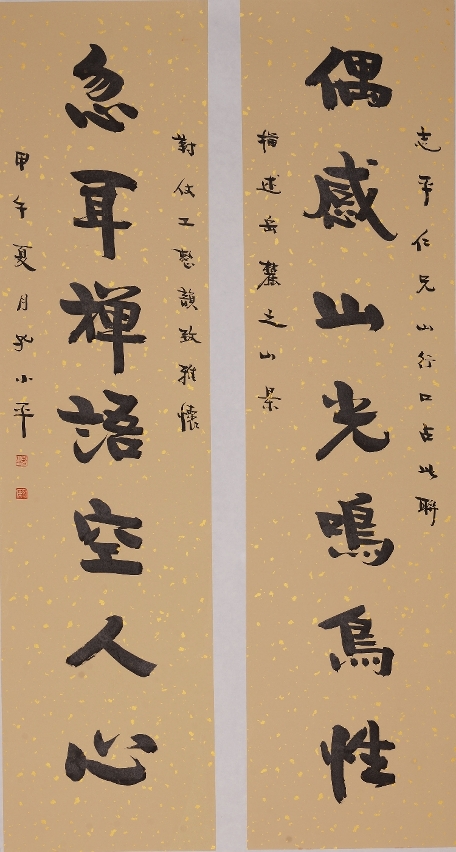 志平仁兄山行口占此聯
偶感山光鳴鳥性
描述岳麓之山景
對仗工愁韻致雅懷
忽耳禪語空人心
甲午夏月孔小平